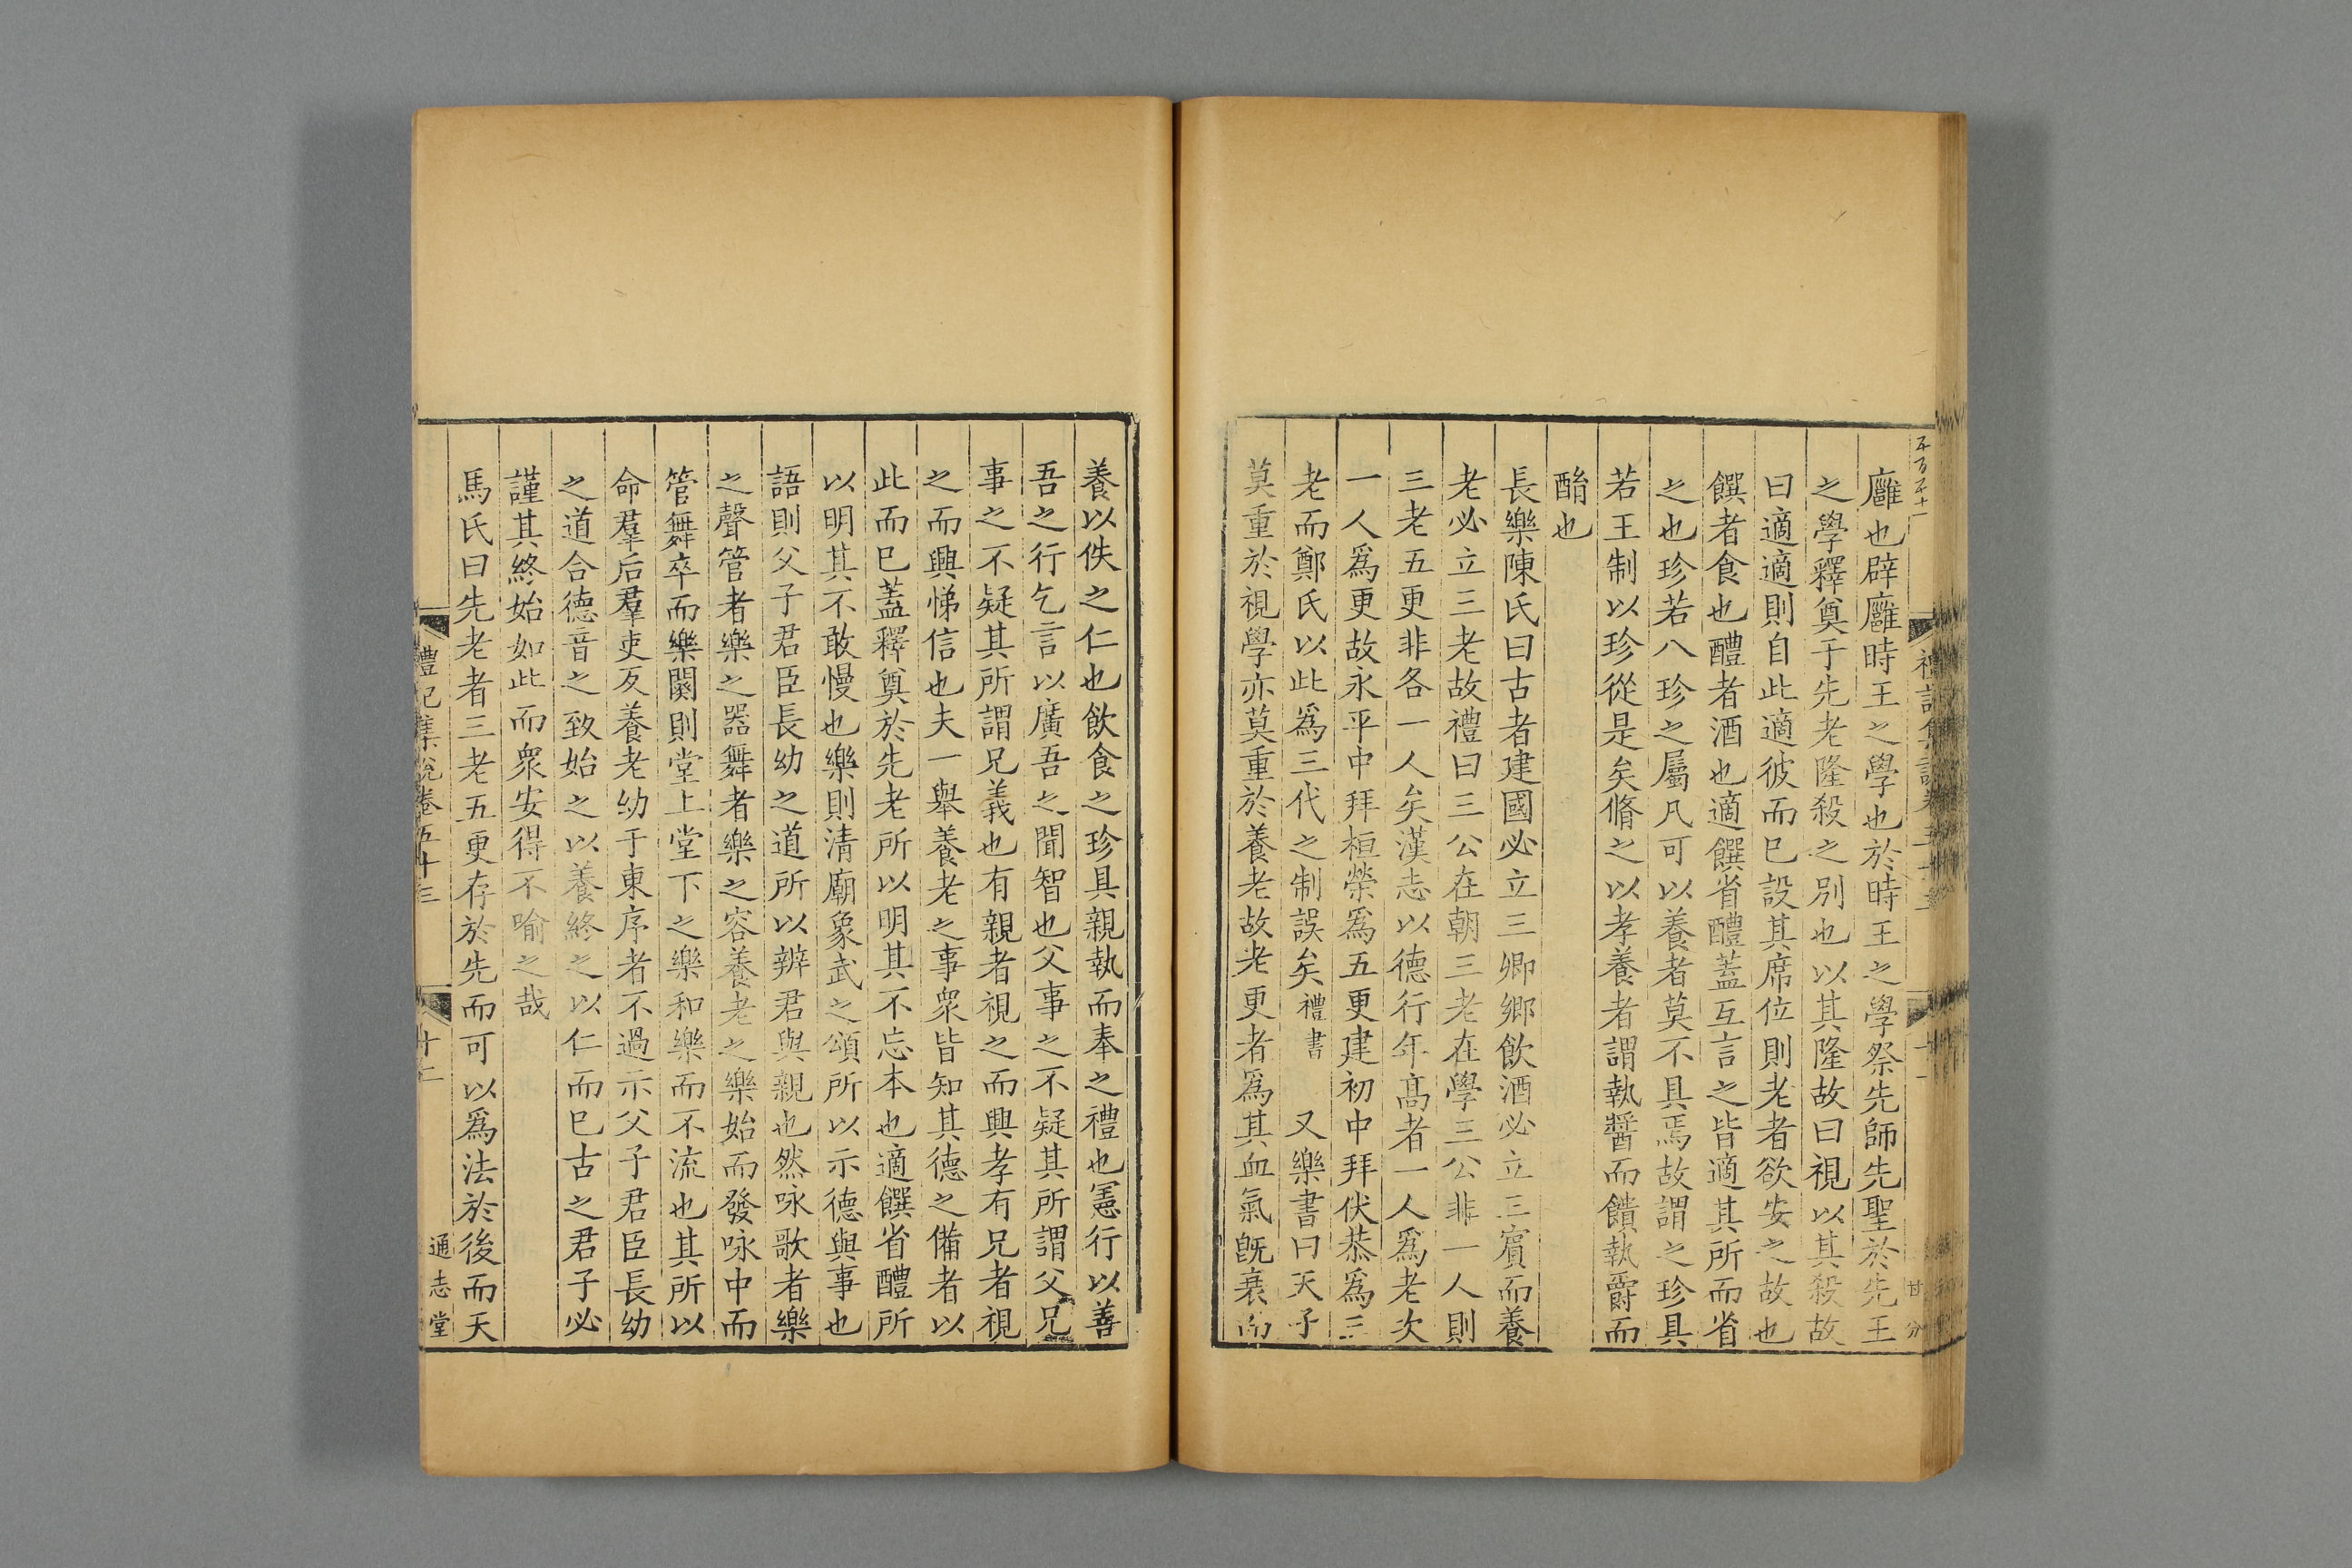 廱也辟廱時王之學也於時王之學祭先師先聖於先王
之學釋奠于先老隆殺之別也以其隆故曰視以其殺故
曰適適則自此適彼而已設其席位則老者欲安之故也
饌者食也醴者酒也適饌省醴蓋互言之皆適其所而省
之也珍若八珍之屬凡可以養者莫不具焉故謂之珍具
若王制以珍從是矣脩之以孝養者謂執醬而饋執爵而
酳也
長樂陳氏曰古者建國必立三卿鄉飲酒必立三賓而養
老必立三老故禮曰三公在朝三老在學三公非一人則
三老五更非各一人矣漢志以德行年髙者一人爲老次
一人爲更故永平中拜桓榮爲五更建初中拜伏恭爲三
老而鄭氏以此爲三代之制誤矣禮書　又樂書曰天子
莫重於視學亦莫重於養老故老更者爲其血氣旣衰而
養以佚之仁也飲食之珍具親執而奉之禮也憲行以善
吾之行乞言以廣吾之聞智也父事之不疑其所謂父兄
事之不疑其所謂兄義也有親者視之而興孝有兄者視
之而興悌信也夫一舉養老之事衆皆知其德之備者以
此而已蓋釋奠於先老所以明其不忘本也適饌省醴所
以明其不敢慢也樂則清廟象武之頌所以示德與事也
語則父子君臣長幼之道所以辨君與親也然咏歌者樂
之聲管者樂之器舞者樂之容養老之樂始而發咏中而
管舞卒而樂闋則堂上堂下之樂和樂而不流也其所以
命羣后羣吏反養老幼于東序者不過示父子君臣長幼
之道合德音之致始之以養終之以仁而已古之君子必
謹其終始如此而衆安得不喻之哉
馬氏曰先老者三老五更存於先而可以爲法於後而天
禮記集說卷五十三
十二
通志堂